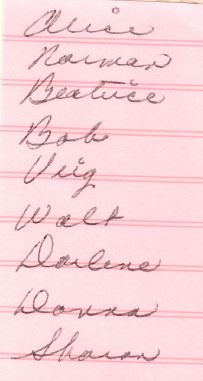 Alice
Norman
Beatrice
Bob
Virg
Walt
Darlene
Donna
Sharon